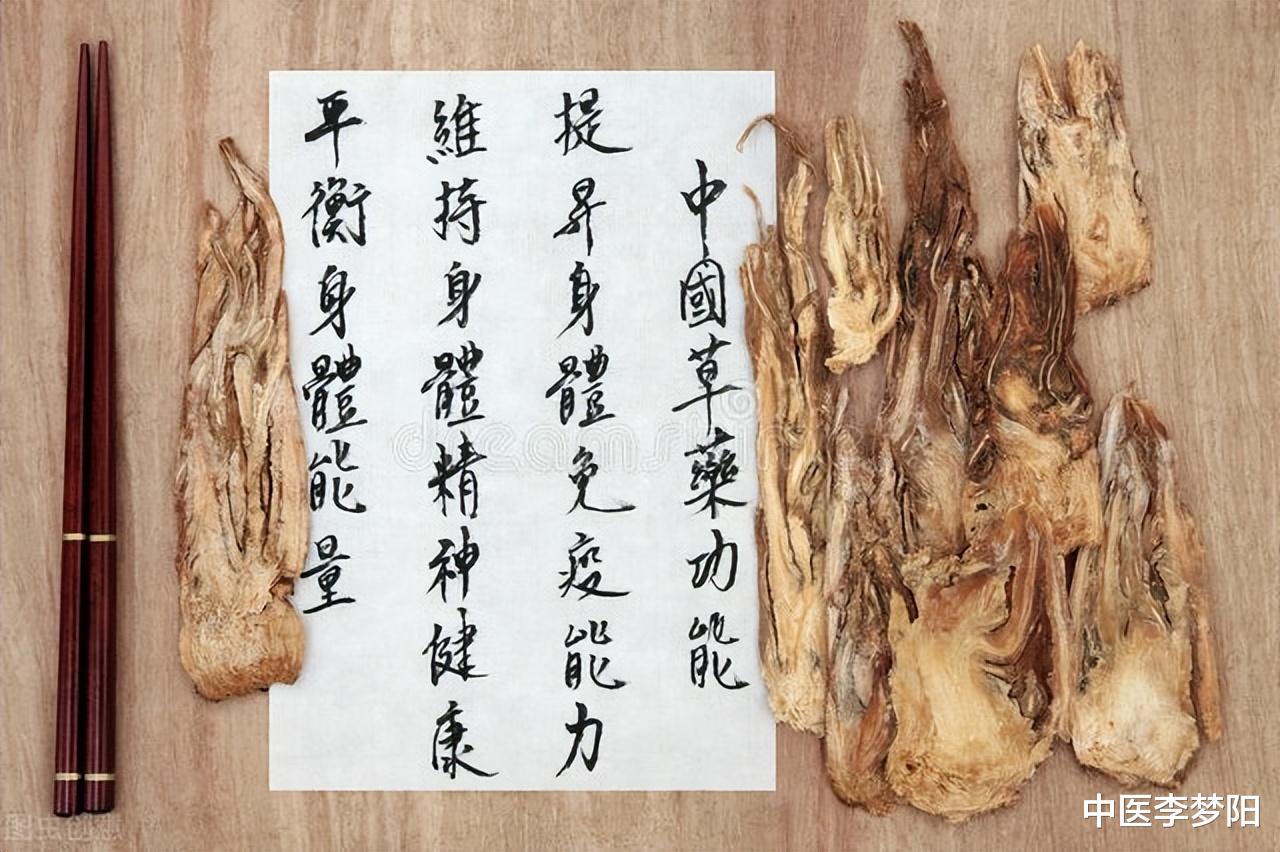 中國草藥功能
提昇身體免疫能力
維持身體精神健康
平衡身體能量
dreamstime
中医李梦阳